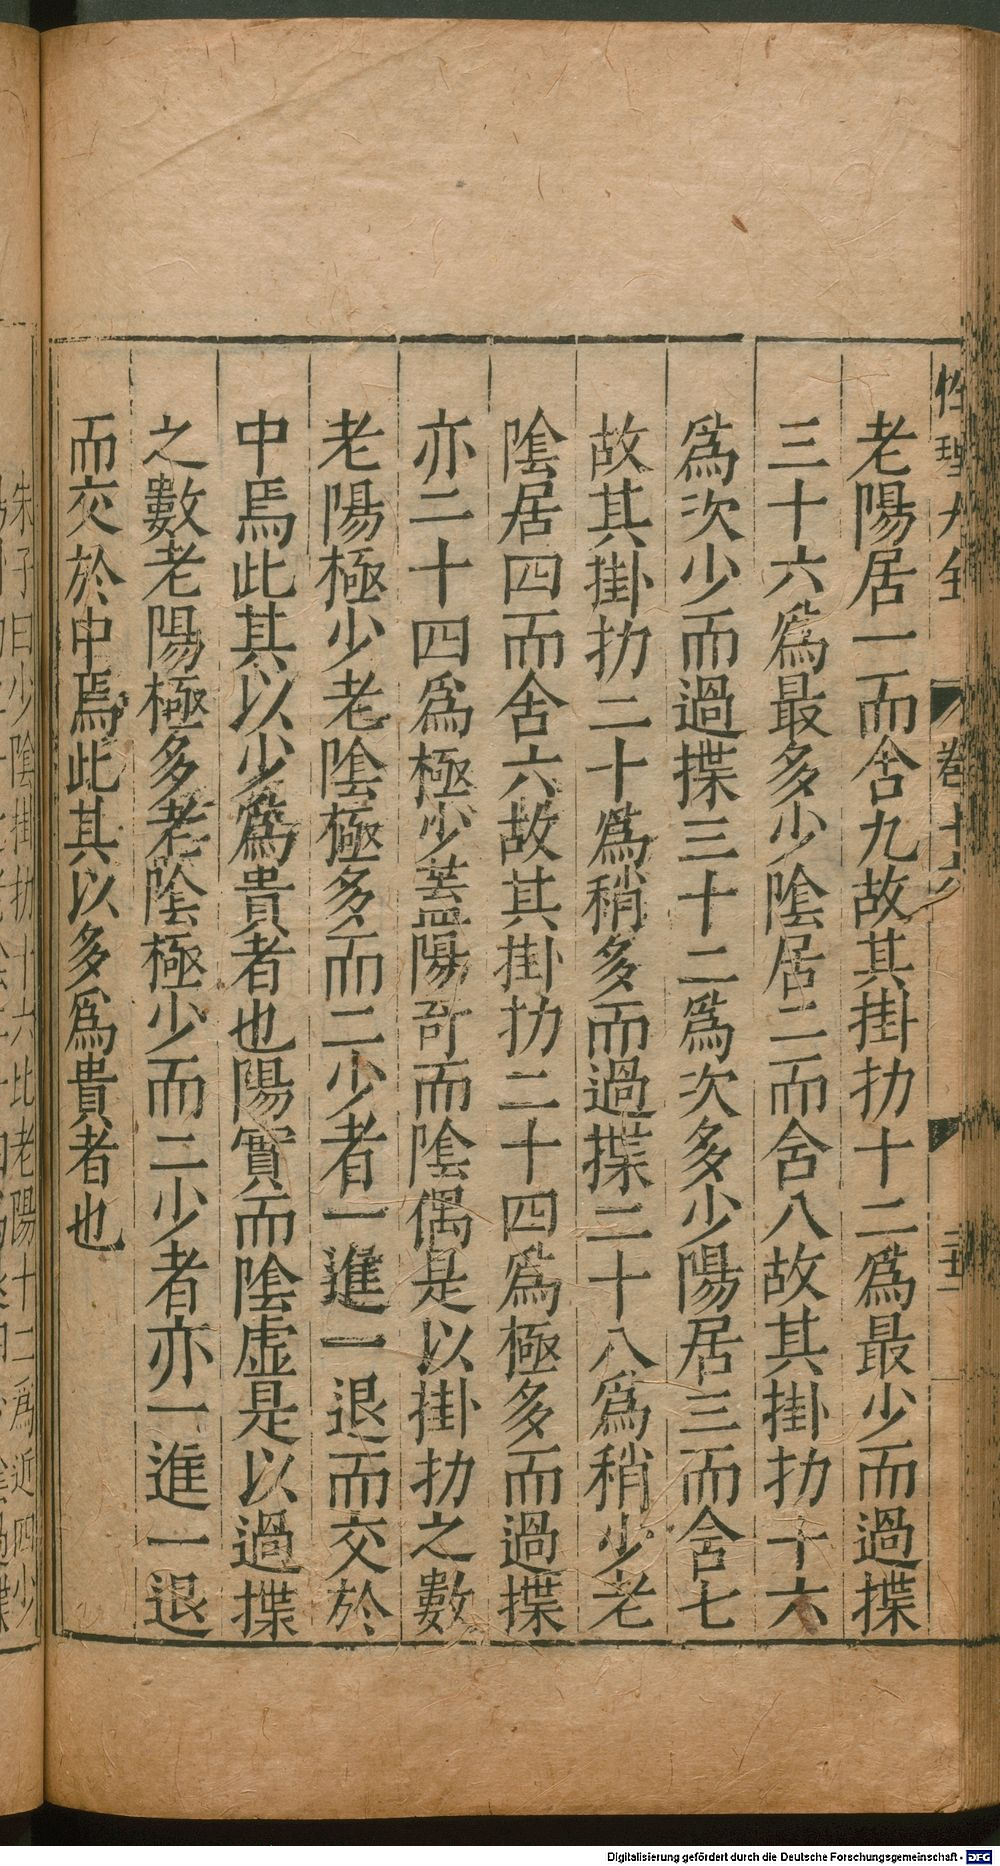 性理大全 卷十六
老陽居一而含九故其掛扐十二爲最少而過揲
三十六爲最多少陰居二而含八故其掛扐十六
爲次少而過揲三十二爲次多少陽居三而含七
故其掛扐二十爲稍多而過揲二十八爲稍少老
陰居四而含六故其掛扐二十四爲極多而過揲
亦二十四爲極少蓋陽奇而陰偶是以掛扐之數
老陽極少老陰極多而二少者一進一退而交於
中焉此其以少爲貴者也陽實而陰虛是以過揲
之數老陽極多老陰極少而二少者亦一進一退
而交於中焉此其以多爲貴者也
朱子曰少陰掛扐十六比老陽十二爲近四少
Digitalisierung gefördert durch die Deutsche Forschungsgemeinschaft - DFG